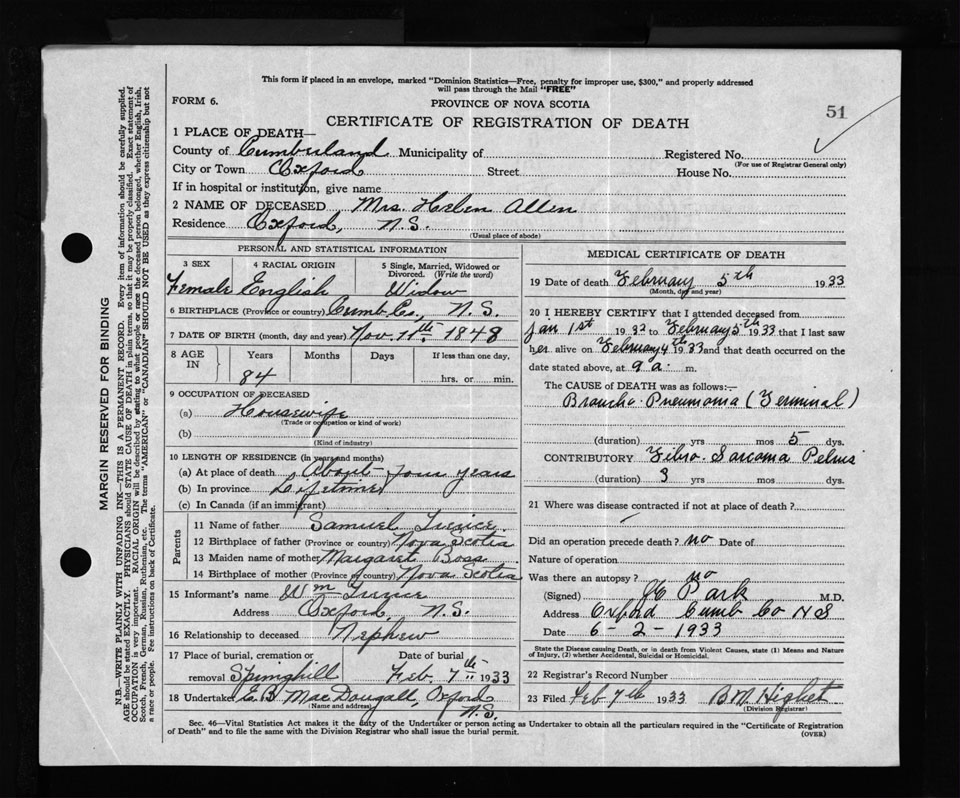 This form if placed in an envelope, marked "Dominion Statistics—Free, penalty for improper use, $300," and properly addressed
will pass through the Mail "FREE"
FORM 6.
PROVINCE OF NOVA SCOTIA
51
CERTIFICATE OF REGISTRATION OF DEATH
1 PLACE OF DEATH—
County of Cumberland Municipality of Registered No.
(For use of Registrar General only)
City or Town Oxford Street House No.
If in hospital or institution, give name
2 NAME OF DECEASED Mrs. Helen Allen
Residence Oxford, N.S.
(Usual place of abode)
PERSONAL AND STATISTICAL INFORMATION
3 SEX 4 RACIAL ORIGIN 5 Single, Married, Widowed or Divorced. (Write the word)
Female English Widow
6 BIRTHPLACE (Province or country) Cumb. Co., N.S.
7 DATE OF BIRTH (month, day and year) Nov. 11th. 1848
8 AGE IN Years Months Days If less than one day,
84 hrs. or min.
9 OCCUPATION OF DECEASED
(a) Housewife
(Trade or occupation or kind of work)
(b)
(Kind of industry)
10 LENGTH OF RESIDENCE (in years and months)
(a) At place of death About four years
(b) In province Lifetime
(c) In Canada (if an immigrant)
Parents
11 Name of father Samuel
12 Birthplace of father (Province or country) Nova Scotia
13 Maiden name of mother Margaret Boss
14 Birthplace of mother (Province or country) Nova Scotia
15 Informant's name Wm
Address Oxford, N.S.
16 Relationship to deceased Nephew
17 Place of burial, cremation or removal Springhill Date of burial Feb. 7th 1933
18 Undertaker E.B. MacDougall, Oxford N.S.
(Name and address)
MEDICAL CERTIFICATE OF DEATH
19 Date of death February 5th 1933
(Month, day and year)
20 I HEREBY CERTIFY that I attended deceased from
Jan 1st 1933 to February 5th 1933 that I last saw
her alive on February 4th 1933 and that death occurred on the
date stated above, at 9 a. m.
The CAUSE of DEATH was as follows:—
Broncho-Pneumonia (Terminal)
(duration) yrs mos 5 dys.
CONTRIBUTORY Fibro-Sarcoma Pelvis
(duration) 3 yrs mos dys.
21 Where was disease contracted if not at place of death?
Did an operation precede death? no Date of
Nature of operation
Was there an autopsy? no
(Signed) Park M.D.
Address Oxford Cumb Co NS
Date 6-2-1933
State the Disease causing Death, or in death from Violent Causes, state (1) Means and Nature
of Injury, (2) whether Accidental, Suicidal or Homicidal.
22 Registrar's Record Number
23 Filed Feb 7th 1933 B.M. Highet
(Division Registrar)
Sec. 46—Vital Statistics Act makes it the duty of the Undertaker or person acting as Undertaker to obtain all the particulars required in the "Certificate of Registration
of Death" and to file the same with the Division Registrar who shall issue the burial permit.
(OVER)
MARGIN RESERVED FOR BINDING
N.B.—WRITE PLAINLY WITH UNFADING INK—THIS IS A PERMANENT RECORD. Every item of information should be carefully supplied.
AGE should be stated EXACTLY. PHYSICIANS should STATE CAUSE OF DEATH in plain terms, so that it may be properly classified. Exact statement of
OCCUPATION is very important. RACIAL ORIGIN will be described by stating to what people or race the deceased person belonged, whether English, Irish,
Scotch, French, German, Russian, Ruthenian, etc. The terms "AMERICAN" or "CANADIAN" SHOULD NOT BE USED as they express citizenship but not
a race or people. Fee instructions on back of Certificate.